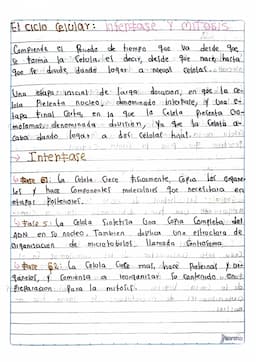 El ciclo Celular: Interfase Y mitosis
Comprende el Periodo de tiempo que va desde que
se forma la Celula, es decir, desde que nace hasta
que se divide dando lugar a nuevas celulas.
Una etapa inicial de larga duracion, en que la ce-
lula Presenta nucleo, denominado interfase, y una e-
tapa Final Corta, en la que la Celula Presenta Cro-
mosomas denominada división, Ya que la Celula a-
caba dando lugar a dos Celulas hijas.
→ Interfase
Fase G1: la Celula Crece fisicamente, Copia los organe-
los y hace Componentes moleculares que necesitara en
etapas Posteriores.
Fase S: la Celula Sintetiza una Copia Completa del
ADN en su nucleo. Tambien duplica una estructura de
organizacion de microtubulos llamada Centrosoma
Fase G2: la Celula Crece mas, hace Proteinas y or-
ganelos, y Comienza a reorganizar su contenido en
Preparacion Para la mitosis.